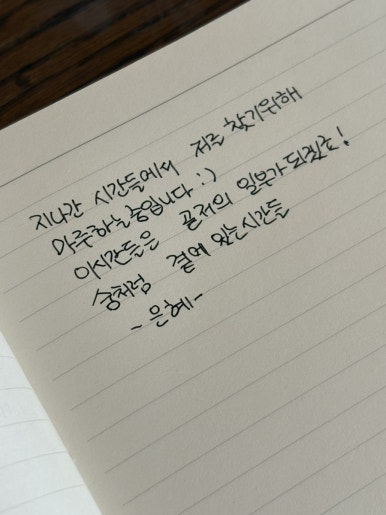 지나간 시간들에서 저를 찾기위해
마주하는중입니다 :)
이시간들은 곧저의 일부가되겠죠!
숨처럼 곁에 있는시간들
- 은혜 -